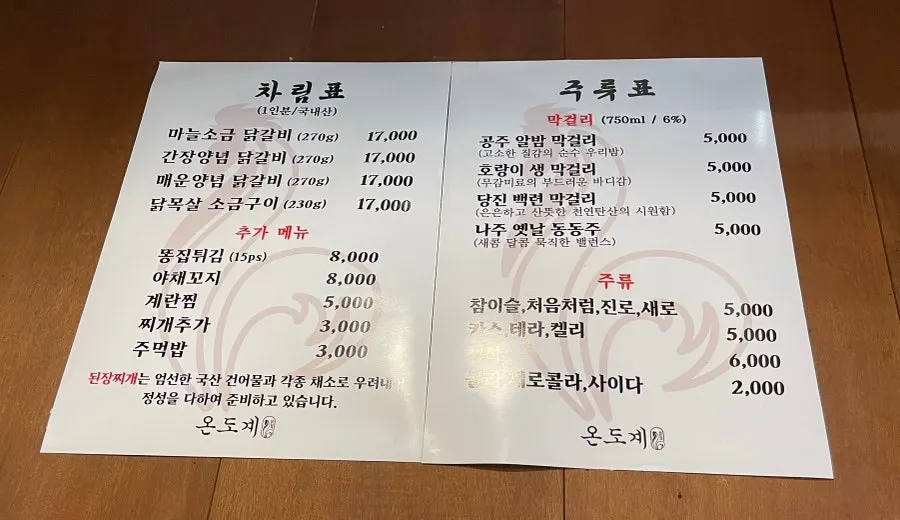 차림표
(1인분/국내산)
마늘소금 닭갈비 (270g) 17,000
간장양념 닭갈비 (270g) 17,000
매운양념 닭갈비 (270g) 17,000
닭목살 소금구이 (230g) 17,000
추가 메뉴
똥집튀김 (15ps) 8,000
야채꼬지 8,000
계란찜 5,000
찌개추가 3,000
주먹밥 3,000
된장찌개는 엄선한 국산 건어물과 각종 채소로 우려내
정성을 다하여 준비하고 있습니다.
온도계
주류표
막걸리 (750ml / 6%)
공주 알밤 막걸리 5,000
(고소한 질감의 순수 우리밤)
호랑이 생 막걸리 5,000
(무감미료의 부드러운 바디감)
당진 백련 막걸리 5,000
(은은하고 산뜻한 천연탄산의 시원함)
나주 옛날 동동주 5,000
(새콤 달콤 묵직한 밸런스)
주류
참이슬,처음처럼,진로,새로 5,000
카스,테라,켈리 5,000
6,000
제로콜라,사이다 2,000
온도계